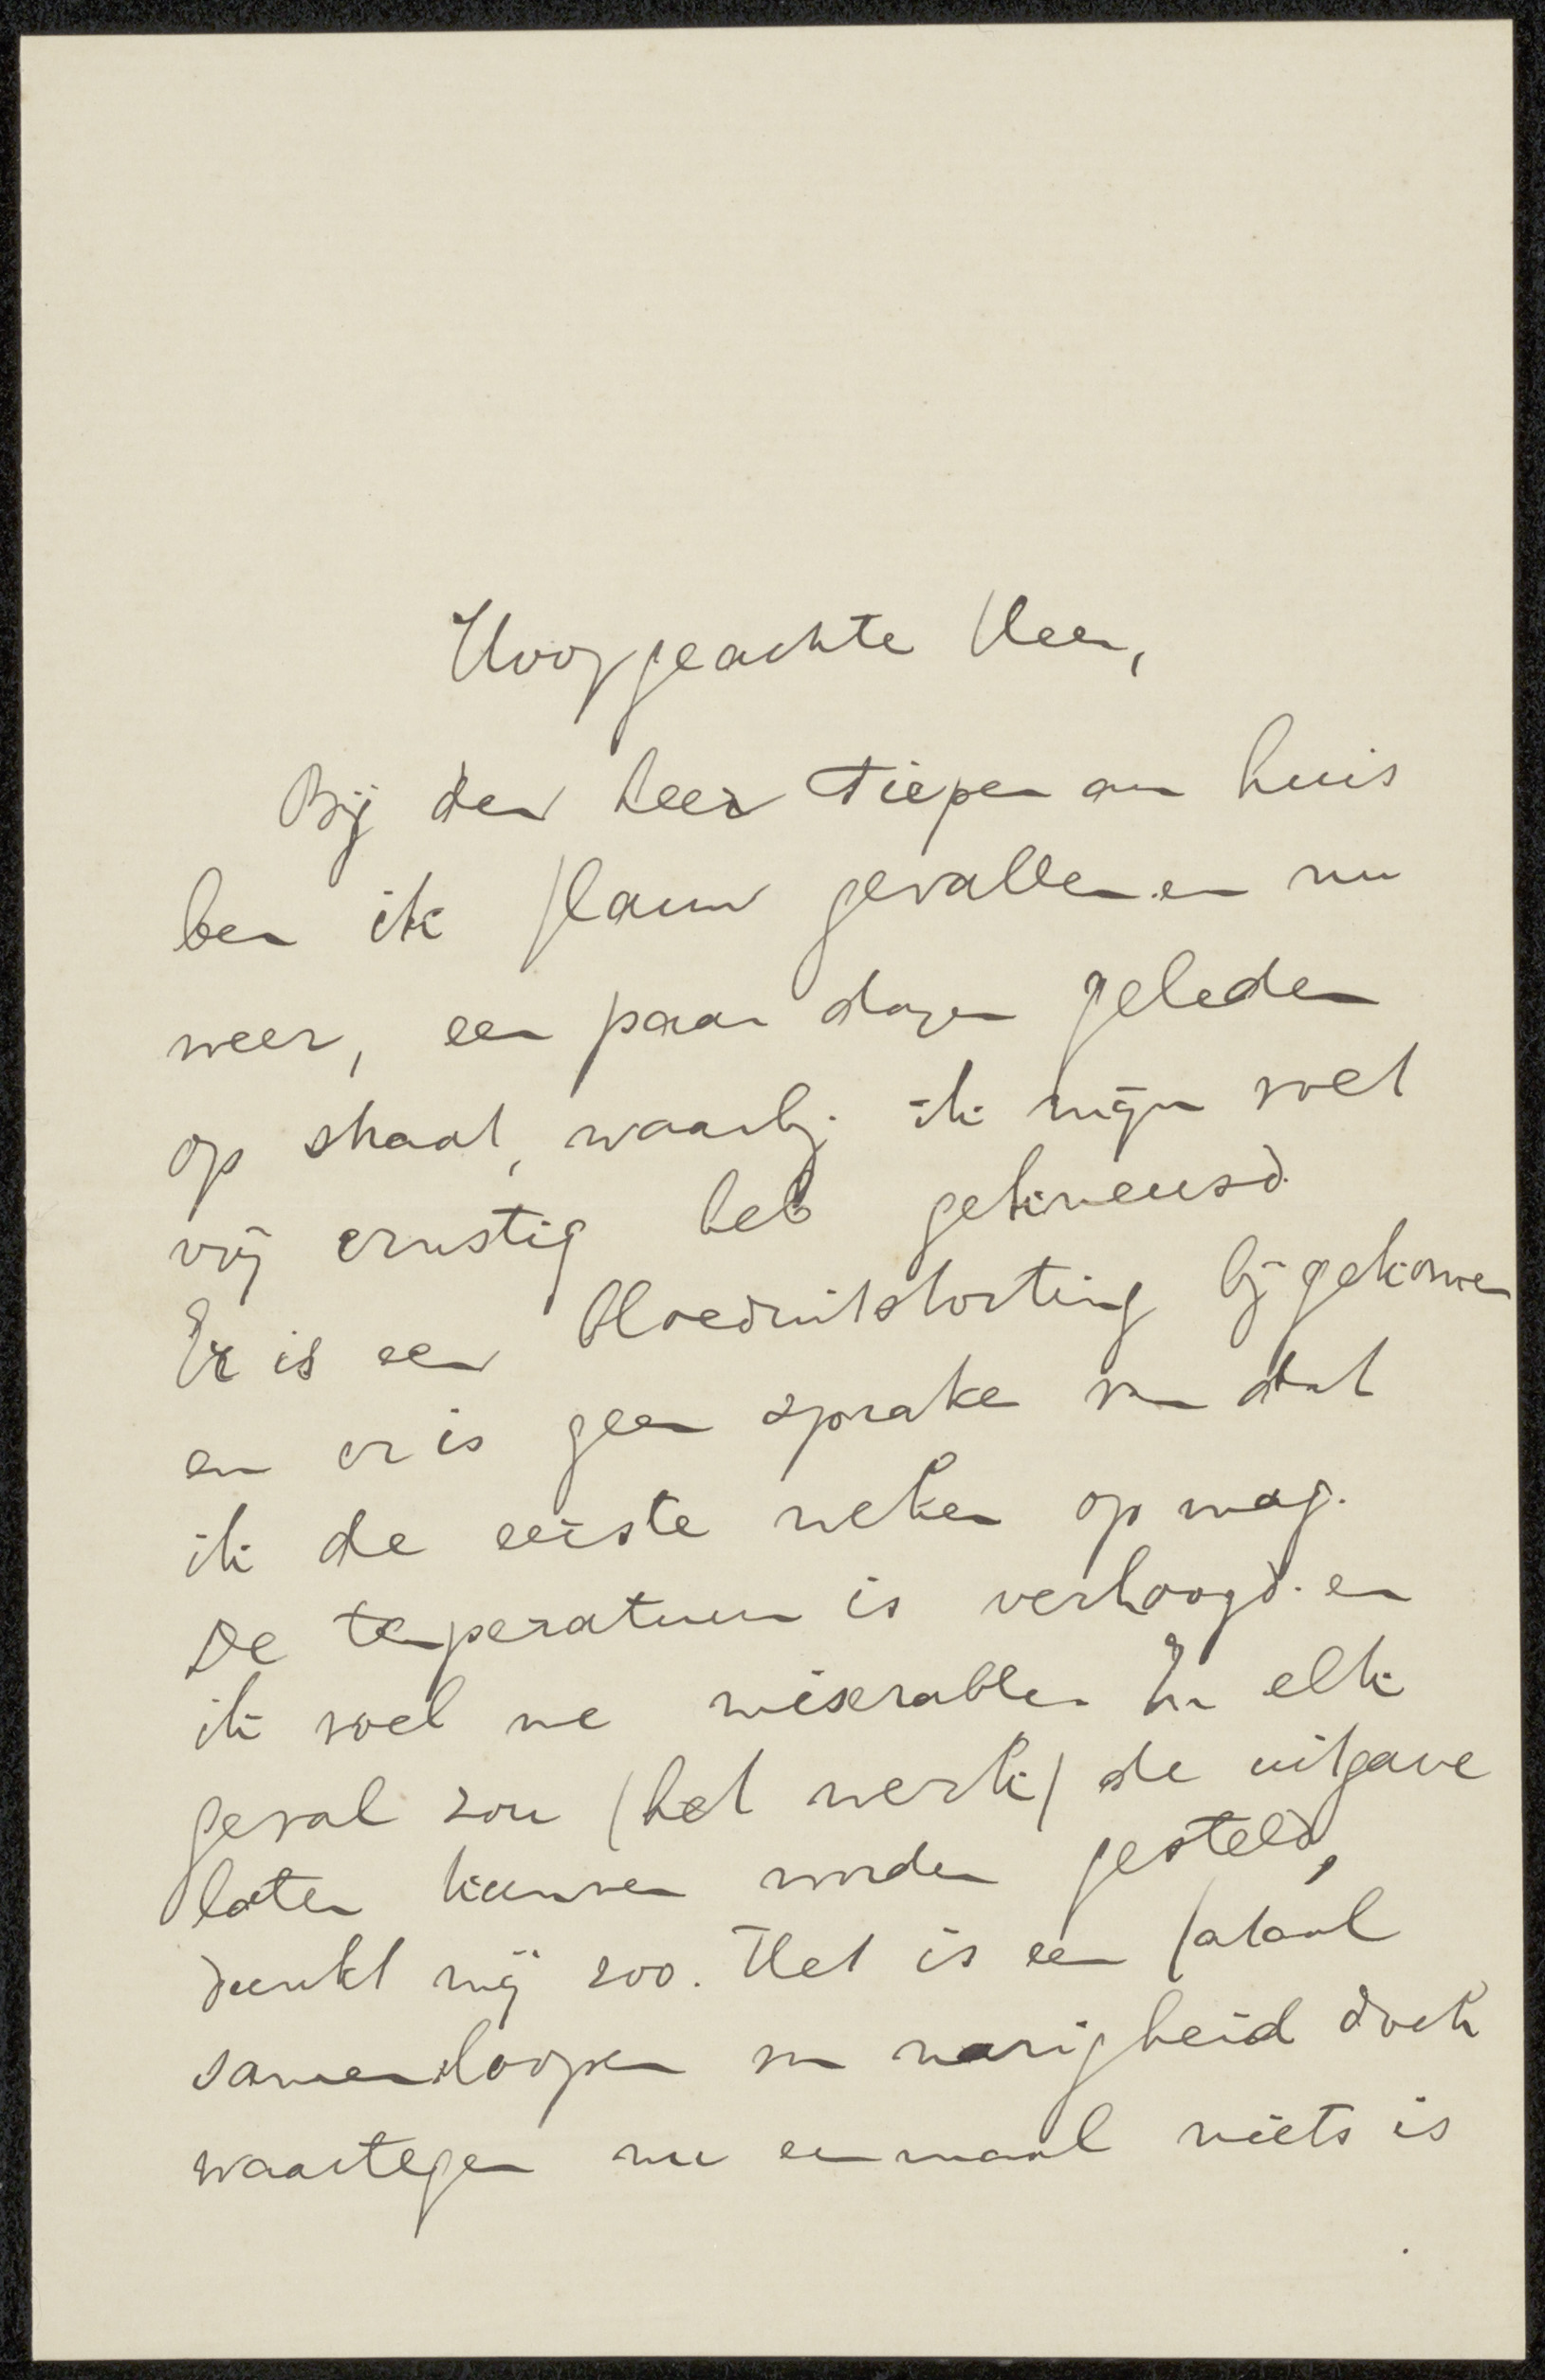 Hooggeachte Heer,
Bij den heer Tiepen aan huis
ben ik flauw gevallen en nu
weer, een paar dagen geleden
op straat, waarbij ik mijn voet
vrij ernstig heb gekneusd.
Er is een bloeduitstorting bijgekomen
en er is geen sprake van dat
ik de eerste weken op mag.
De temperatuur is verhoogd. en
ik voel me miserabler. In elk
geval zou (het werk) de uitgave
later kunnen worden gesteld,
dunkt mij zoo. Het is een fataal
samenloopen van narigheid doch
waartegen nu eenmaal niets is